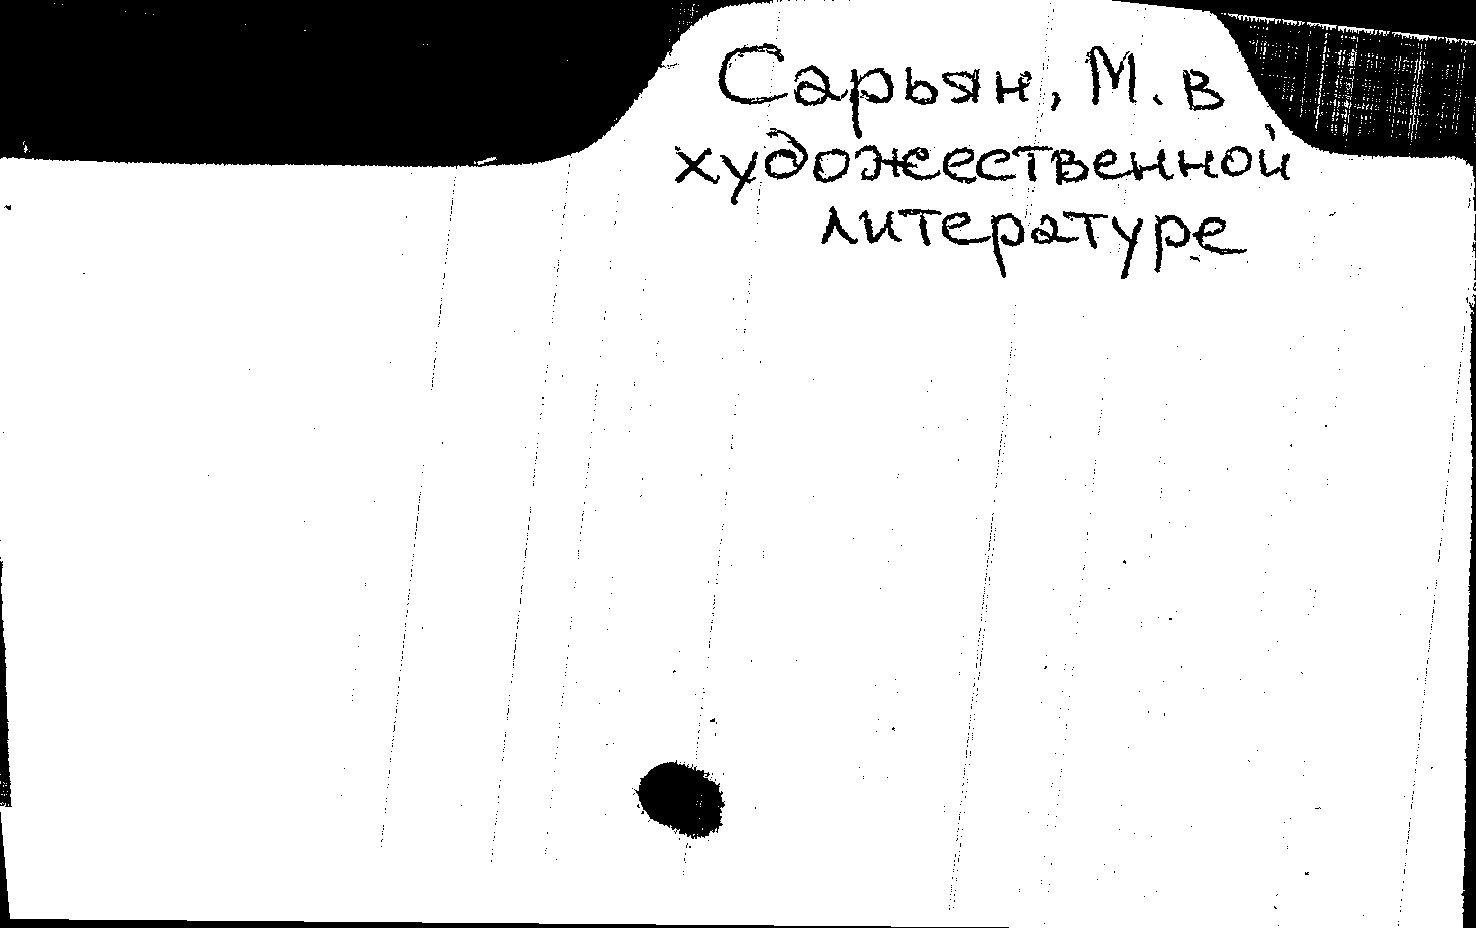 Сарьян, М. в
художественной
литературе